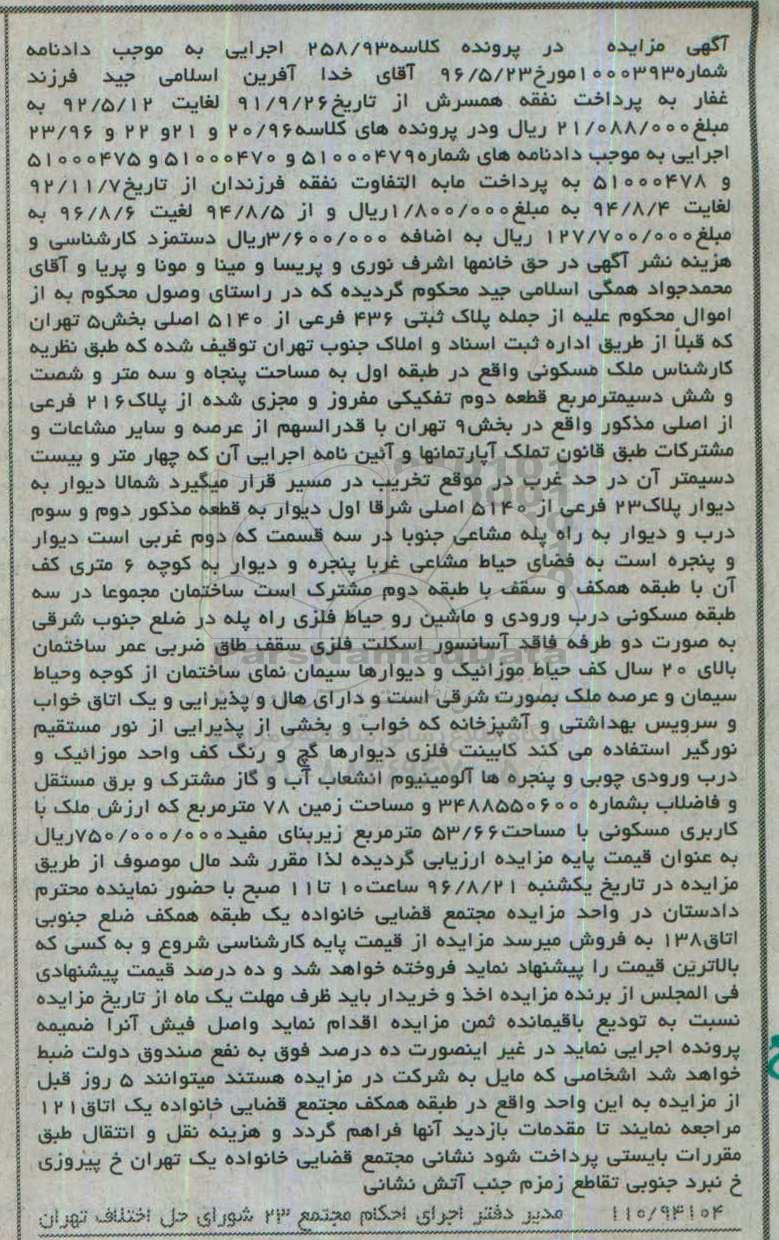 آگهی مزایده در پرونده کلاسه۲۵۸/۹۳ اجرایی به موجب دادنامه
شماره۱۰۰۰۳۹۳مورخ۹۶/۵/۲۳ آقای خدا آفرین اسلامی جید فرزند
غفار به پرداخت نفقه همسرش از تاریخ۹۱/۹/۲۶ لغایت ۹۲/۵/۱۲ به
مبلغ۲۱/۰۸۸/۰۰۰ ریال ودر پرونده های کلاسه۲۰/۹۶ و ۲۱و ۲۲ و ۲۳/۹۶
اجرایی به موجب دادنامه های شماره۵۱۰۰۰۴۷۹ و ۵۱۰۰۰۴۷۰ و ۵۱۰۰۰۴۷۵
و ۵۱۰۰۰۴۷۸ به پرداخت مابه التفاوت نفقه فرزندان از تاریخ۹۲/۱۱/۷
لغایت ۹۴/۸/۴ به مبلغ۱/۸۰۰/۰۰۰ریال و از ۹۴/۸/۵ لغیت ۹۶/۸/۶ به
مبلغ۱۲۷/۷۰۰/۰۰۰ ریال به اضافه ۳/۶۰۰/۰۰۰ریال دستمزد کارشناسی و
هزینه نشر آگهی در حق خانمها اشرف نوری و پریسا و مینا و مونا و پریا و آقای
محمدجواد همگی اسلامی جید محکوم گردیده که در راستای وصول محکوم به از
اموال محکوم علیه از جمله پلاک ثبتی ۴۳۶ فرعی از ۵۱۴۰ اصلی بخش۵ تهران
که قبلاً از طریق اداره ثبت اسناد و املاک جنوب تهران توقیف شده که طبق نظریه
کارشناس ملک مسکونی واقع در طبقه اول به مساحت پنجاه و سه متر و شصت
و شش دسیمترمربع قطعه دوم تفکیکی مفروز و مجزی شده از پلاک۲۱۶ فرعی
از اصلی مذکور واقع در بخش۹ تهران با قدرالسهم از عرصه و سایر مشاعات و
مشترکات طبق قانون تملک آپارتمانها و آئین نامه اجرایی آن که چهار متر و بیست
دسیمتر آن در حد غرب در موقع تخریب در مسیر قرار میگیرد شمالا دیوار به
دیوار پلاک۲۳ فرعی از ۵۱۴۰ اصلی شرقا اول دیوار به قطعه مذکور دوم و سوم
درب و دیوار به راه پله مشاعی جنوبا در سه قسمت که دوم غربی است دیوار
و پنجره است به فضای حیاط مشاعی غربا پنجره و دیوار به کوچه ۶ متری کف
آن با طبقه همکف و سقف با طبقه دوم مشترک است ساختمان مجموعا در سه
طبقه مسکونی درب ورودی و ماشین رو حیاط فلزی راه پله در ضلع جنوب شرقی
به صورت دو طرفه فاقد آسانسور اسکلت فلزی سقف طاق ضربی عمر ساختمان
بالای ۲۰ سال کف حیاط موزائیک و دیوارها سیمان نمای ساختمان از کوجه وحیاط
سیمان و عرصه ملک بصورت شرقی است و دارای هال و پذیرایی و یک اتاق خواب
و سرویس بهداشتی و آشپزخانه که خواب و بخشی از پذیرایی از نور مستقیم
نورگیر استفاده می کند کابینت فلزی دیوارها گچ و رنگ کف واحد موزائیک و
درب ورودی چوبی و پنجره ها آلومینیوم انشعاب آب و گاز مشترک و برق مستقل
و فاضلاب بشماره ۳۴۸۸۵۵۰۶۰۰ و مساحت زمین ۷۸ مترمربع که ارزش ملک با
کاربری مسکونی با مساحت۵۳/۶۶ مترمربع زیربنای مفید۷۵۰/۰۰۰/۰۰۰ریال
به عنوان قیمت پایه مزایده ارزیابی گردیده لذا مقرر شد مال موصوف از طریق
مزایده در تاریخ یکشنبه ۹۶/۸/۲۱ ساعت۱۰ تا۱۱ صبح با حضور نماینده محترم
دادستان در واحد مزایده مجتمع قضایی خانواده یک طبقه همکف ضلع جنوبی
اتاق۱۳۸ به فروش میرسد مزایده از قیمت پایه کارشناسی شروع و به کسی که
بالاترین قیمت را پیشنهاد نماید فروخته خواهد شد و ده درصد قیمت پیشنهادی
فی المجلس از برنده مزایده اخذ و خریدار باید ظرف مهلت یک ماه از تاریخ مزایده
نسبت به تودیع باقیمانده ثمن مزایده اقدام نماید واصل فیش آنرا ضمیمه
پرونده اجرایی نماید در غیر اینصورت ده درصد فوق به نفع صندوق دولت ضبط
خواهد شد اشخاصی که مایل به شرکت در مزایده هستند میتوانند ۵ روز قبل
از مزایده به این واحد واقع در طبقه همکف مجتمع قضایی خانواده یک اتاق۱۲۱
مراجعه نمایند تا مقدمات بازدید آنها فراهم گردد و هزینه نقل و انتقال طبق
مقررات بایستی پرداخت شود نشانی مجتمع قضایی خانواده یک تهران خ پیروزی
خ نبرد جنوبی تقاطع زمزم جنب آتش نشانی
۱۱۰/۹۴۱۰۴ مدیر دفتر اجرای احکام مجتمع ۲۳ شورای حل اختلاف تهران